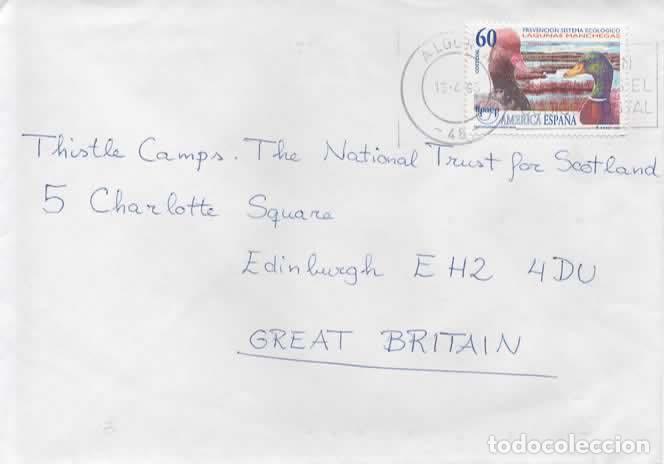 60
CORREOS
PREVENCIÓN SISTEMA ECOLÓGICO
LAGUNAS MANCHEGAS
AMÉRICA ESPAÑA
- 48
Thistle Camps. The National Trust for Scotland
5 Charlotte Square
Edinburgh EH2 4DU
GREAT BRITAIN
todocoleccion